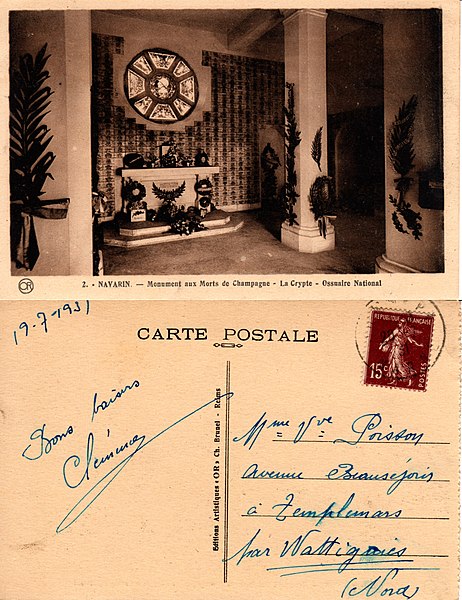 OR
2. - NAVARIN. — Monument aux Morts de Champagne - La Crypte - Ossuaire National
19-7-1931
CARTE POSTALE
REPUBLIQUE FRANÇAISE
15c
POSTES
Bons baisers
Clémence
Editions Artistiques "OR" Ch. Brunel - Reims
Mme Vve Poisson
avenue Beauséjour
à Templemars
par Wattignies
(Nord)